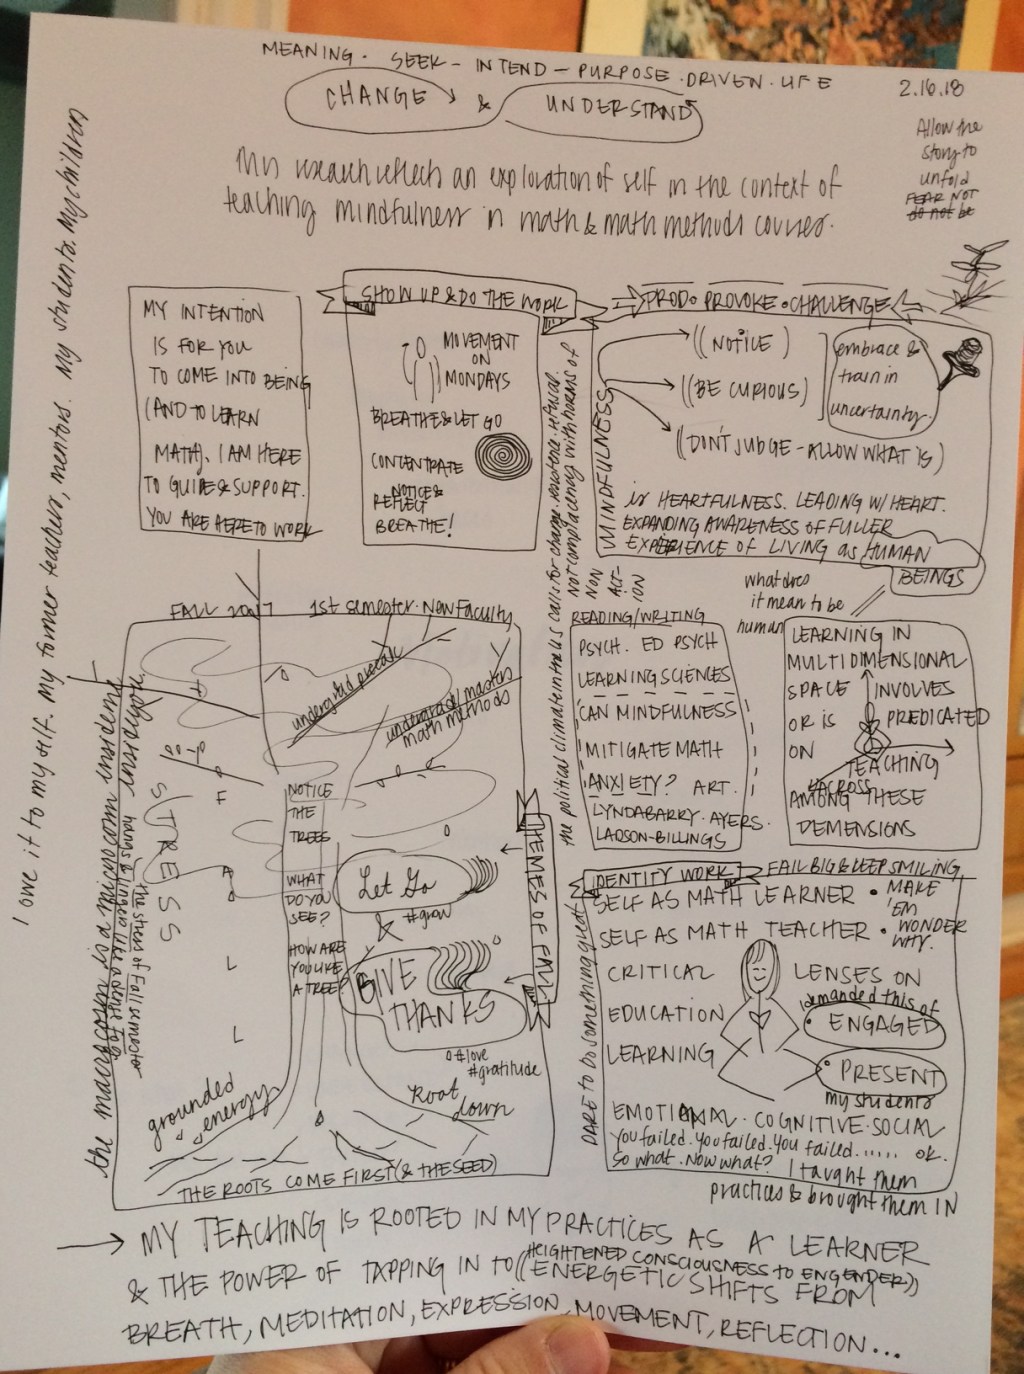 MEANING. SEEK - INTEND - PURPOSE.DRIVEN.LIFE
CHANGE & UNDERSTAND
2.16.18
Allow the
story to
unfold
FEAR NOT
do not be
My research reflects an exploration of self in the context of
teaching mindfulness in math & math methods courses.
I owe it to my self. My former teachers, mentors. My students. My children
MY INTENTION
IS FOR YOU
TO COME INTO BEING
(AND TO LEARN
MATH). I AM HERE
TO GUIDE & SUPPORT.
YOU ARE HERE TO WORK
SHOW UP & DO THE WORK
MOVEMENT
ON
MONDAYS
BREATHE & LET GO
CONCENTRATE
NOTICE &
REFLECT
BREATHE!
the political climate in the US calls for change. resistance. refusal.
Not complacency with norms of
NON
ACT-
ION
PROD. PROVOKE. CHALLENGE
MINDFULNESS
((NOTICE)
((BE CURIOUS)
((DON'T JUDGE - ALLOW WHAT IS)
embrace &
train in
uncertainty.
is HEARTFULNESS. LEADING W/ HEART.
EXPANDING AWARENESS OF FULLER
EXPERIENCE OF LIVING as HUMAN
BEINGS
what does
it mean to be
human
FALL 2017 1st semester. New Faculty
undergrad precalc
undergrad/masters
math methods
the macrocosm is a microcosm inside me
inside you
STRESS
the stress of Fall semester
hangs & lingers like a dense fog
FALL
NOTICE
THE
TREES
WHAT
DO YOU
SEE?
HOW ARE
YOU LIKE
A TREE?
Let Go
#grow
&
GIVE
THANKS
#love
#gratitude
THEMES OF FALL
grounded
energy
Root
down
THE ROOTS COME FIRST (& THE SEED)
READING/WRITING
PSYCH. ED PSYCH
LEARNING SCIENCES
CAN MINDFULNESS
MITIGATE MATH
ANXIETY? ART.
LYNDA BARRY. AYERS.
LADSON-BILLINGS
LEARNING IN
MULTIDIMENSIONAL
SPACE INVOLVES
OR IS PREDICATED
ON
TEACHING
ACROSS
AMONG THESE
DEMENSIONS
IDENTITY WORK
FAIL BIG & KEEP SMILING
SELF AS MATH LEARNER
SELF AS MATH TEACHER
• MAKE
'EM
• WONDER
WHY.
CRITICAL
EDUCATION
LEARNING
LENSES ON
I demanded this of
ENGAGED
PRESENT
my students
EMOTIONAL. COGNITIVE. SOCIAL
You failed. You failed. You failed...... OK.
So what. Now what? I taught them
practices & brought them IN
DARE to Do something great
→ MY TEACHING IS ROOTED IN MY PRACTICES AS A LEARNER
& THE POWER OF TAPPING IN TO ((HEIGHTENED CONSCIOUSNESS TO ENGENDER))
ENERGETIC SHIFTS FROM
BREATH, MEDITATION, EXPRESSION, MOVEMENT, REFLECTION...